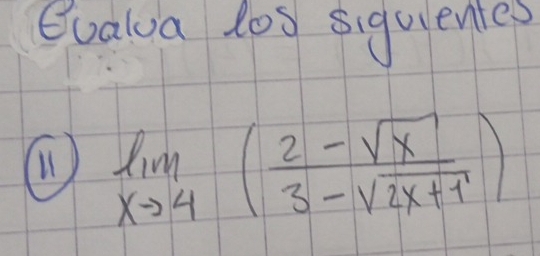 Evalua los siguientes
11 lim x→4 ( (2 - √x) / (3 - √(2x+1)) )